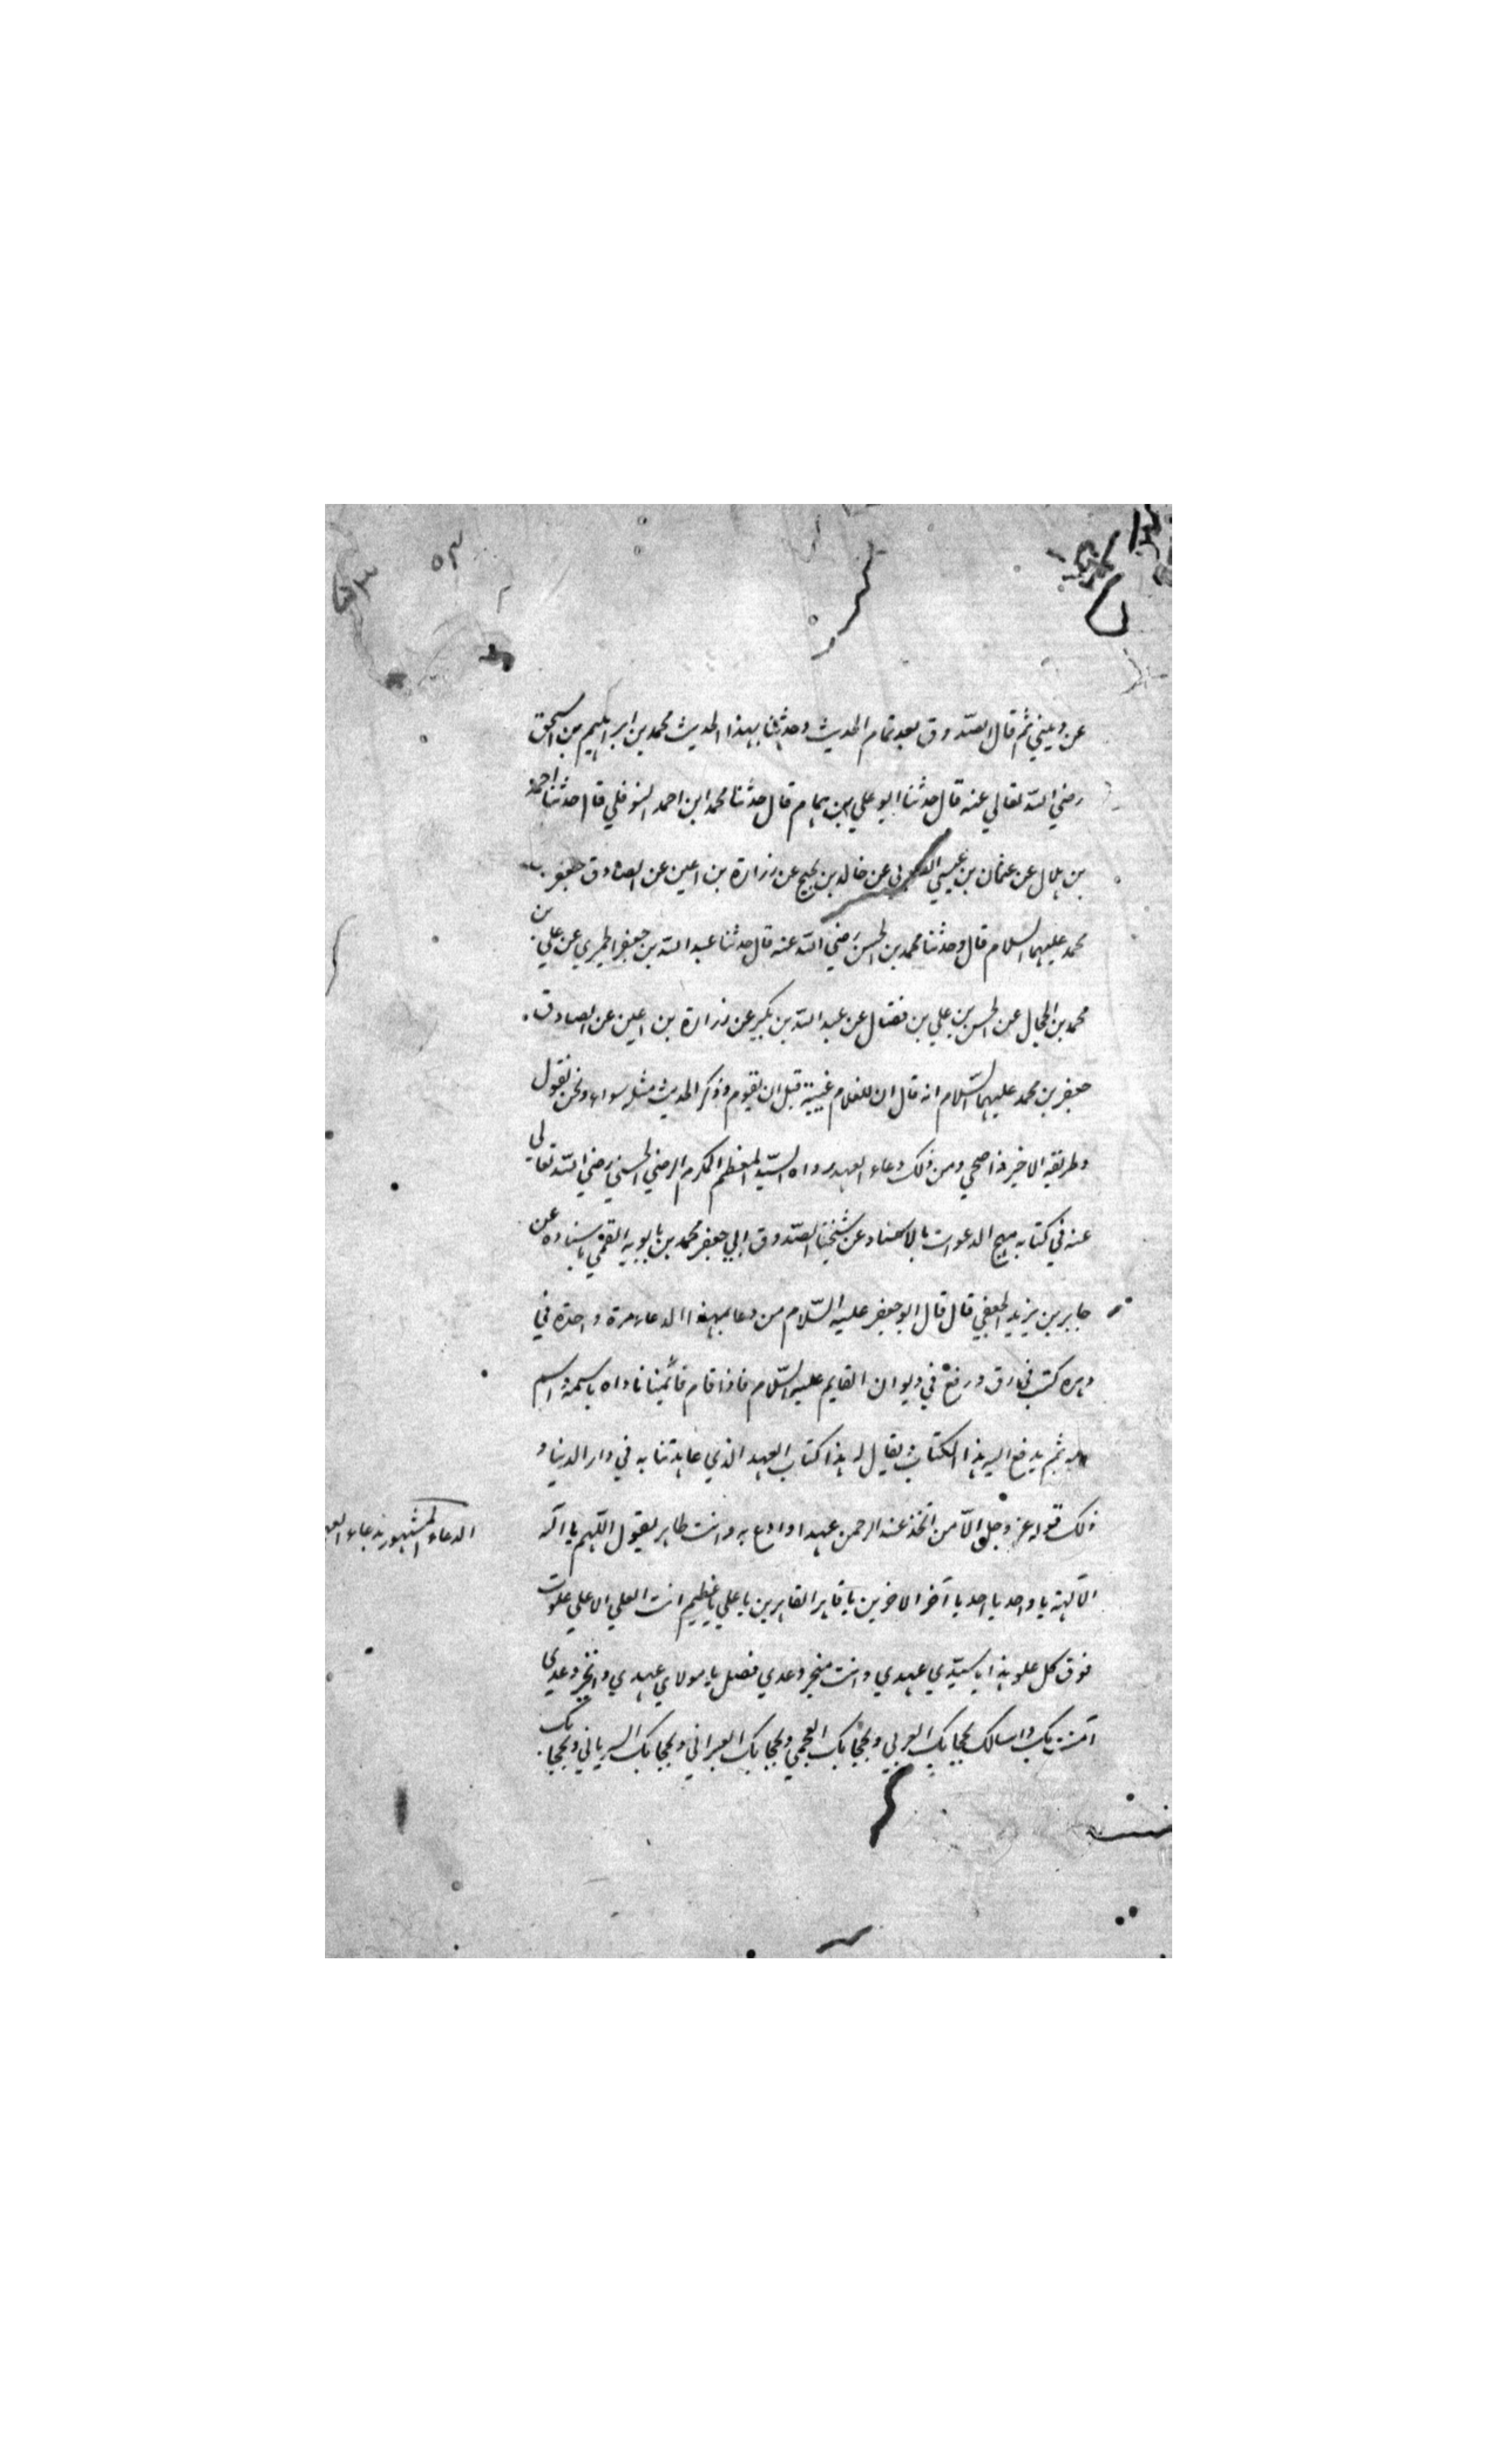 عن ديني ثم قال الصّدوق بعد تمام الحديث وحدثنا بهذا الحديث محمد بن ابراهيم بن اسحق
رضي الله تعالي عنه قال حدثنا ابو علي بن همام قال حدثنا محمد ابن احمد النوفلي قال حدثنا احمد
بن هلال عن عثمان بن عيسي عن خالد بن نجيح عن زرارة بن اعين عن الصادق جعفر بن
محمد عليهما السلام قال وحدثنا محمد بن الحسن رضي الله عنه قال حدثنا عبد الله بن جعفر الحميري عن علي بن
محمد بن الحجال عن الحسن بن علي بن فضال عن عبد الله بن بكير عن زرارة بن اعين عن الصادق
جعفر بن محمد عليهما السّلام انه قال ان للغلام غيبة قبل ان يقوم وذكر الحديث مثله سواء ونحن نقول
وطريقه الاخير ومن ذلك دعاء العهد رواه السيّد المعظم المكرم الرضي الحسني رضي الله تعالي
عنه في كتابه مهج الدعوات بالاسناد عن شيخنا الصّدوق ابي جعفر محمد بن بابويه القمي باسناده عن
جابر بن يزيد الجعفي قال قال ابو جعفر عليه السّلام من دعا بهذا الدعاء مرة واحدة في
دهره كتب في رق ورفع في ديوان القايم عليه السّلام فاذا قام قائمنا ناداه باسمه واسم
ابيه ثم يدفع اليه هذا الكتاب ويقال له هذا كتاب العهد الذي عاهدتنا به في دار الدنيا و
ذلك قوله عز وجل الّا من اتخذ عند الرحمن عهدا وادع به وانت طاهر يقول اللّهم يا اله
الآلهة يا واحد يا احد يا آخر الاخرين يا قاهر القاهرين يا علي يا عظيم انت العلي الاعلي علوت
فوق كل علو هذا يا سيّدي عهدي وانت منجز وعدي فصل يا مولاي عهدي وانجز وعدي
آمنت بك واسالك بحجابك العربي وبحجابك العجمي وبحجابك العبراني وبحجابك السرياني وبحجابك
الدعاء المشهور بدعاء العهد